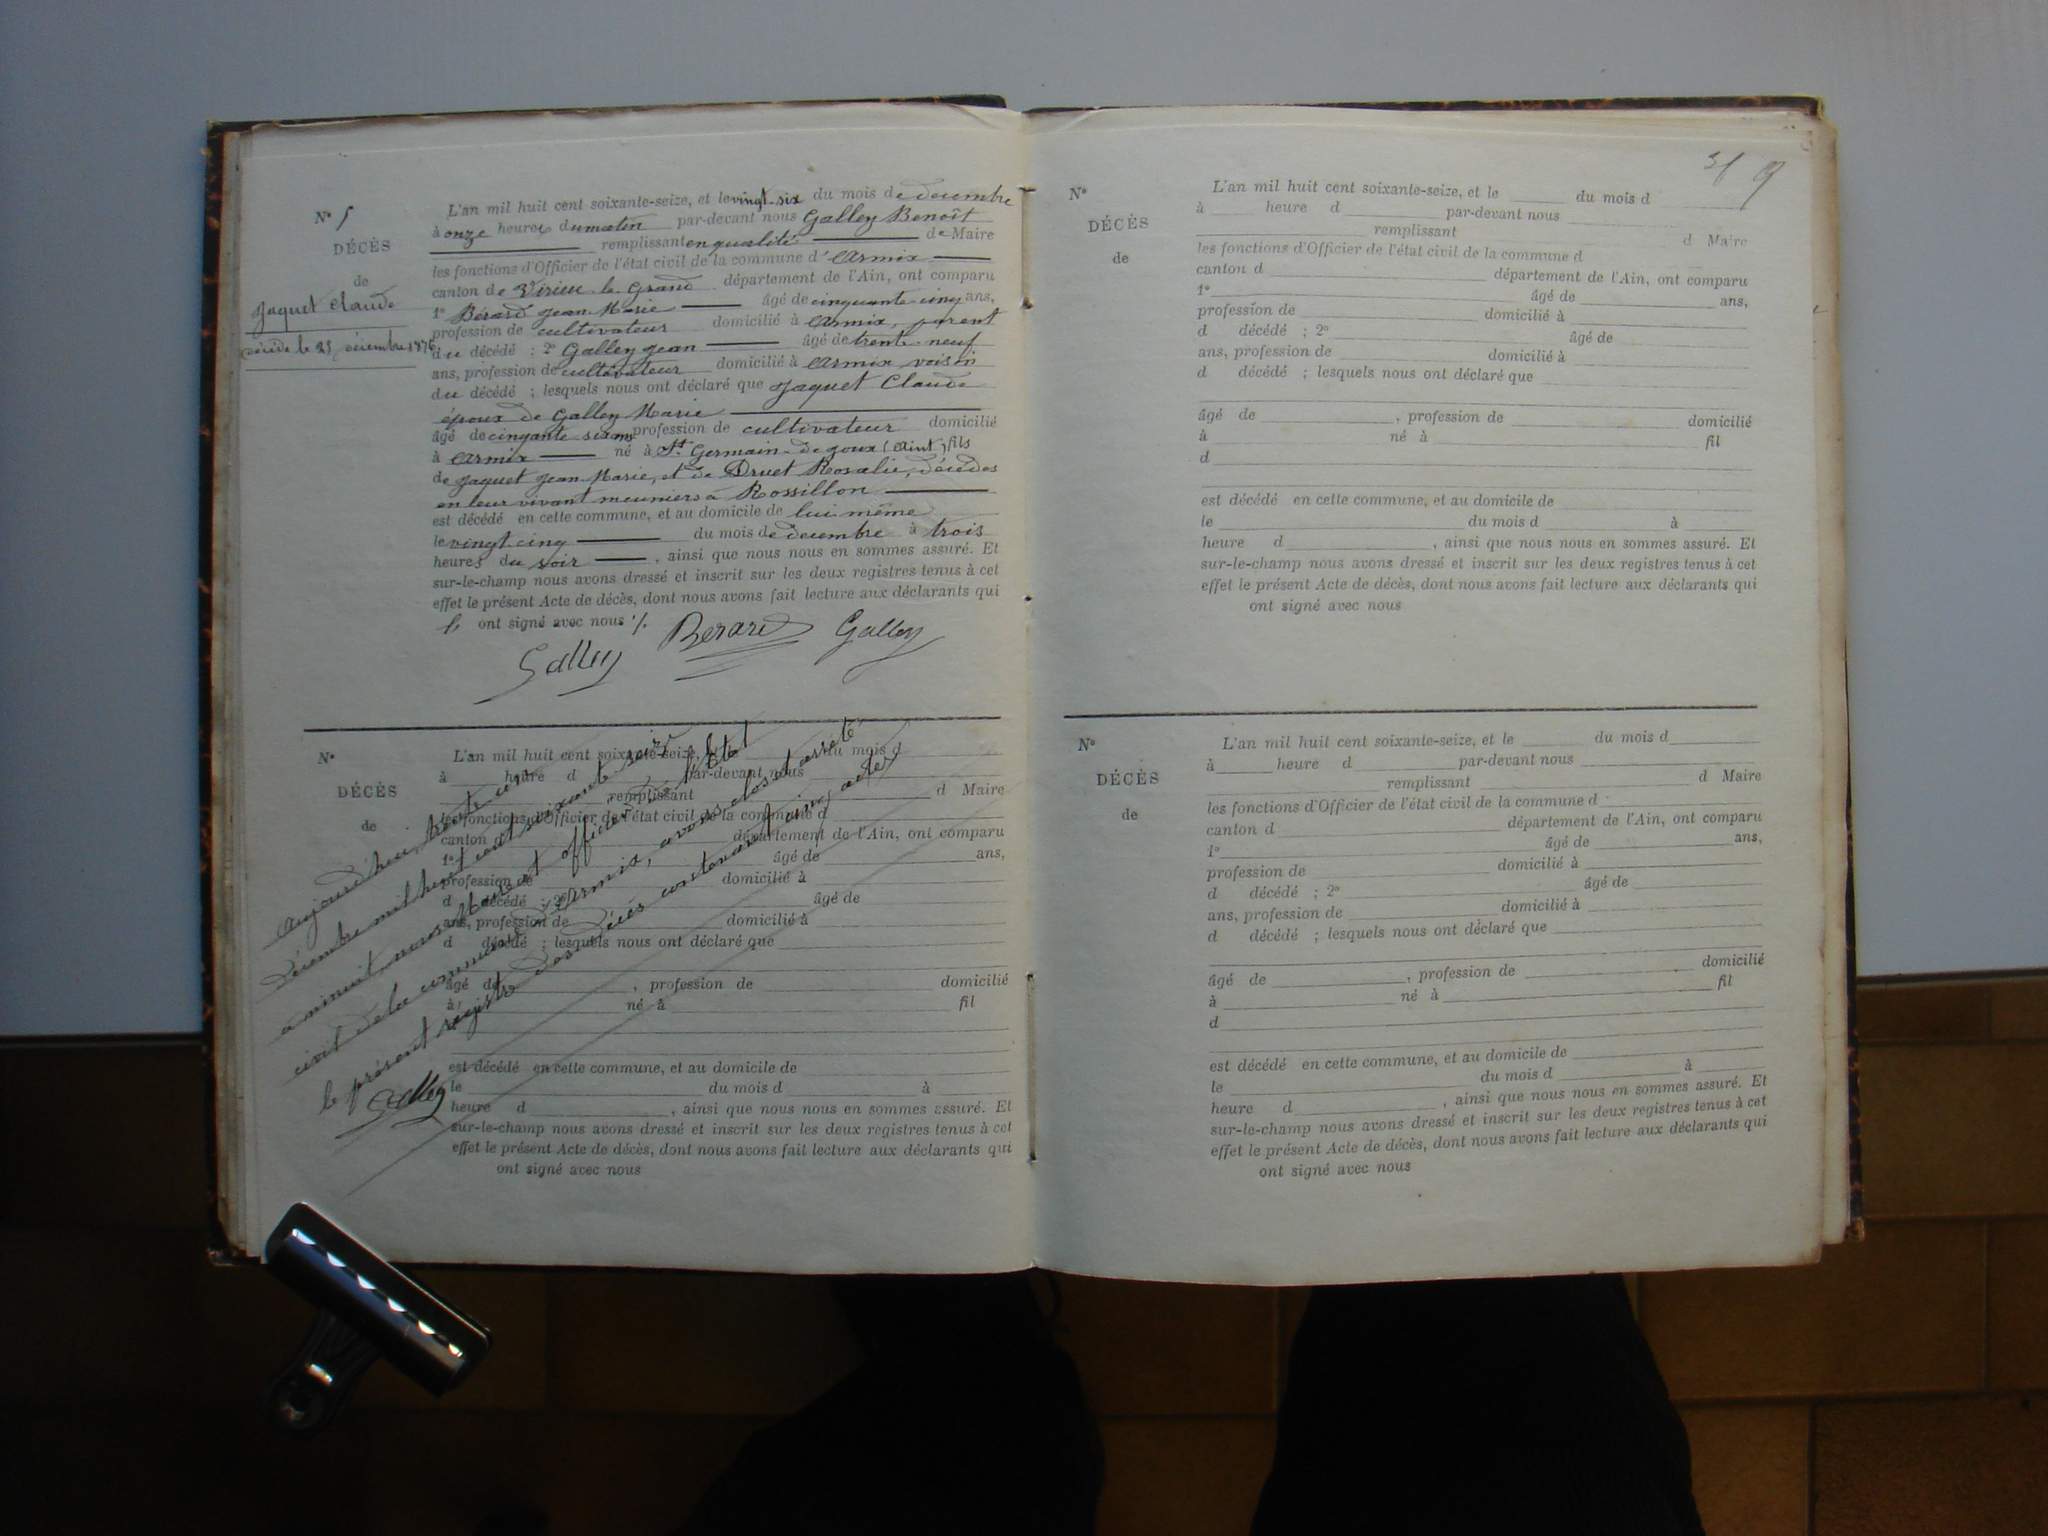 N° 5
DÉCÈS
de
Jaquet Claude
décédé le 25 décembre 1876
L'an mil huit cent soixante-seize, et le vingt-six du mois de decembre
à onze heures du matin par-devant nous Galley Benoît
remplissant en qualité de Maire
les fonctions d'Officier de l'état civil de la commune d'Armix
canton de Virieu le Grand département de l'Ain, ont comparu
1° Bérard Jean Marie âgé de cinquante cinq ans,
profession de cultivateur domicilié à Armix, parent
du décédé ; 2° Galley Jean âgé de trente-neuf
ans, profession de cultivateur domicilié à Armix voisin
du décédé ; lesquels nous ont déclaré que Jaquet Claude
époux de Galley Marie
âgé de cinqante six ans profession de cultivateur domicilié
à Armix né à St Germain-de-joux (Ain), fils
de Jaquet Jean Marie, et de Druet Rosalie, décédés
en leur vivant meuniers à Rossillon
est décédé en cette commune, et au domicile de lui même
le vingt cinq du mois de decembre à trois
heures du soir , ainsi que nous nous en sommes assuré. Et
sur-le-champ nous avons dressé et inscrit sur les deux registres tenus à cet
effet le présent Acte de décès, dont nous avons fait lecture aux déclarants qui
ont signé avec nous
Galley Berard Galley
N°
DÉCÈS
de
L'an mil huit cent soixante-seize, et le du mois d
à heure d par-devant nous
remplissant d Maire
les fonctions d'Officier de l'état civil de la commune d
canton d département de l'Ain, ont comparu
1° âgé de ans,
profession de domicilié à
d décédé ; 2° âgé de
ans, profession de domicilié à
d décédé ; lesquels nous ont déclaré que
âgé de , profession de domicilié
à né à fil
est décédé en cette commune, et au domicile de
le du mois d à
heure d , ainsi que nous nous en sommes assuré. Et
sur-le-champ nous avons dressé et inscrit sur les deux registres tenus à cet
effet le présent Acte de décès, dont nous avons fait lecture aux déclarants qui
ont signé avec nous
Aujourd'hui, trente un
décembre mil huit cent soixante seize
à minuit, nous Maire et officier de l'Etat
civil de la commune d'Armix, avons clos et arrêté
le présent registre des décès contenant cinq actes
Galley
31 9
N°
DÉCÈS
de
L'an mil huit cent soixante-seize, et le du mois d
à heure d par-devant nous
remplissant d Maire
les fonctions d'Officier de l'état civil de la commune d
canton d département de l'Ain, ont comparu
1° âgé de ans,
profession de domicilié à
d décédé ; 2° âgé de
ans, profession de domicilié à
d décédé ; lesquels nous ont déclaré que
âgé de , profession de domicilié
à né à fil
d
est décédé en cette commune, et au domicile de
le du mois d à
heure d , ainsi que nous nous en sommes assuré. Et
sur-le-champ nous avons dressé et inscrit sur les deux registres tenus à cet
effet le présent Acte de décès, dont nous avons fait lecture aux déclarants qui
ont signé avec nous
N°
DÉCÈS
de
L'an mil huit cent soixante-seize, et le du mois d
à heure d par-devant nous
remplissant d Maire
les fonctions d'Officier de l'état civil de la commune d
canton d département de l'Ain, ont comparu
1° âgé de ans,
profession de domicilié à
d décédé ; 2° âgé de
ans, profession de domicilié à
d décédé ; lesquels nous ont déclaré que
âgé de , profession de domicilié
à né à fil
d
est décédé en cette commune, et au domicile de
le du mois d à
heure d , ainsi que nous nous en sommes assuré. Et
sur-le-champ nous avons dressé et inscrit sur les deux registres tenus à cet
effet le présent Acte de décès, dont nous avons fait lecture aux déclarants qui
ont signé avec nous